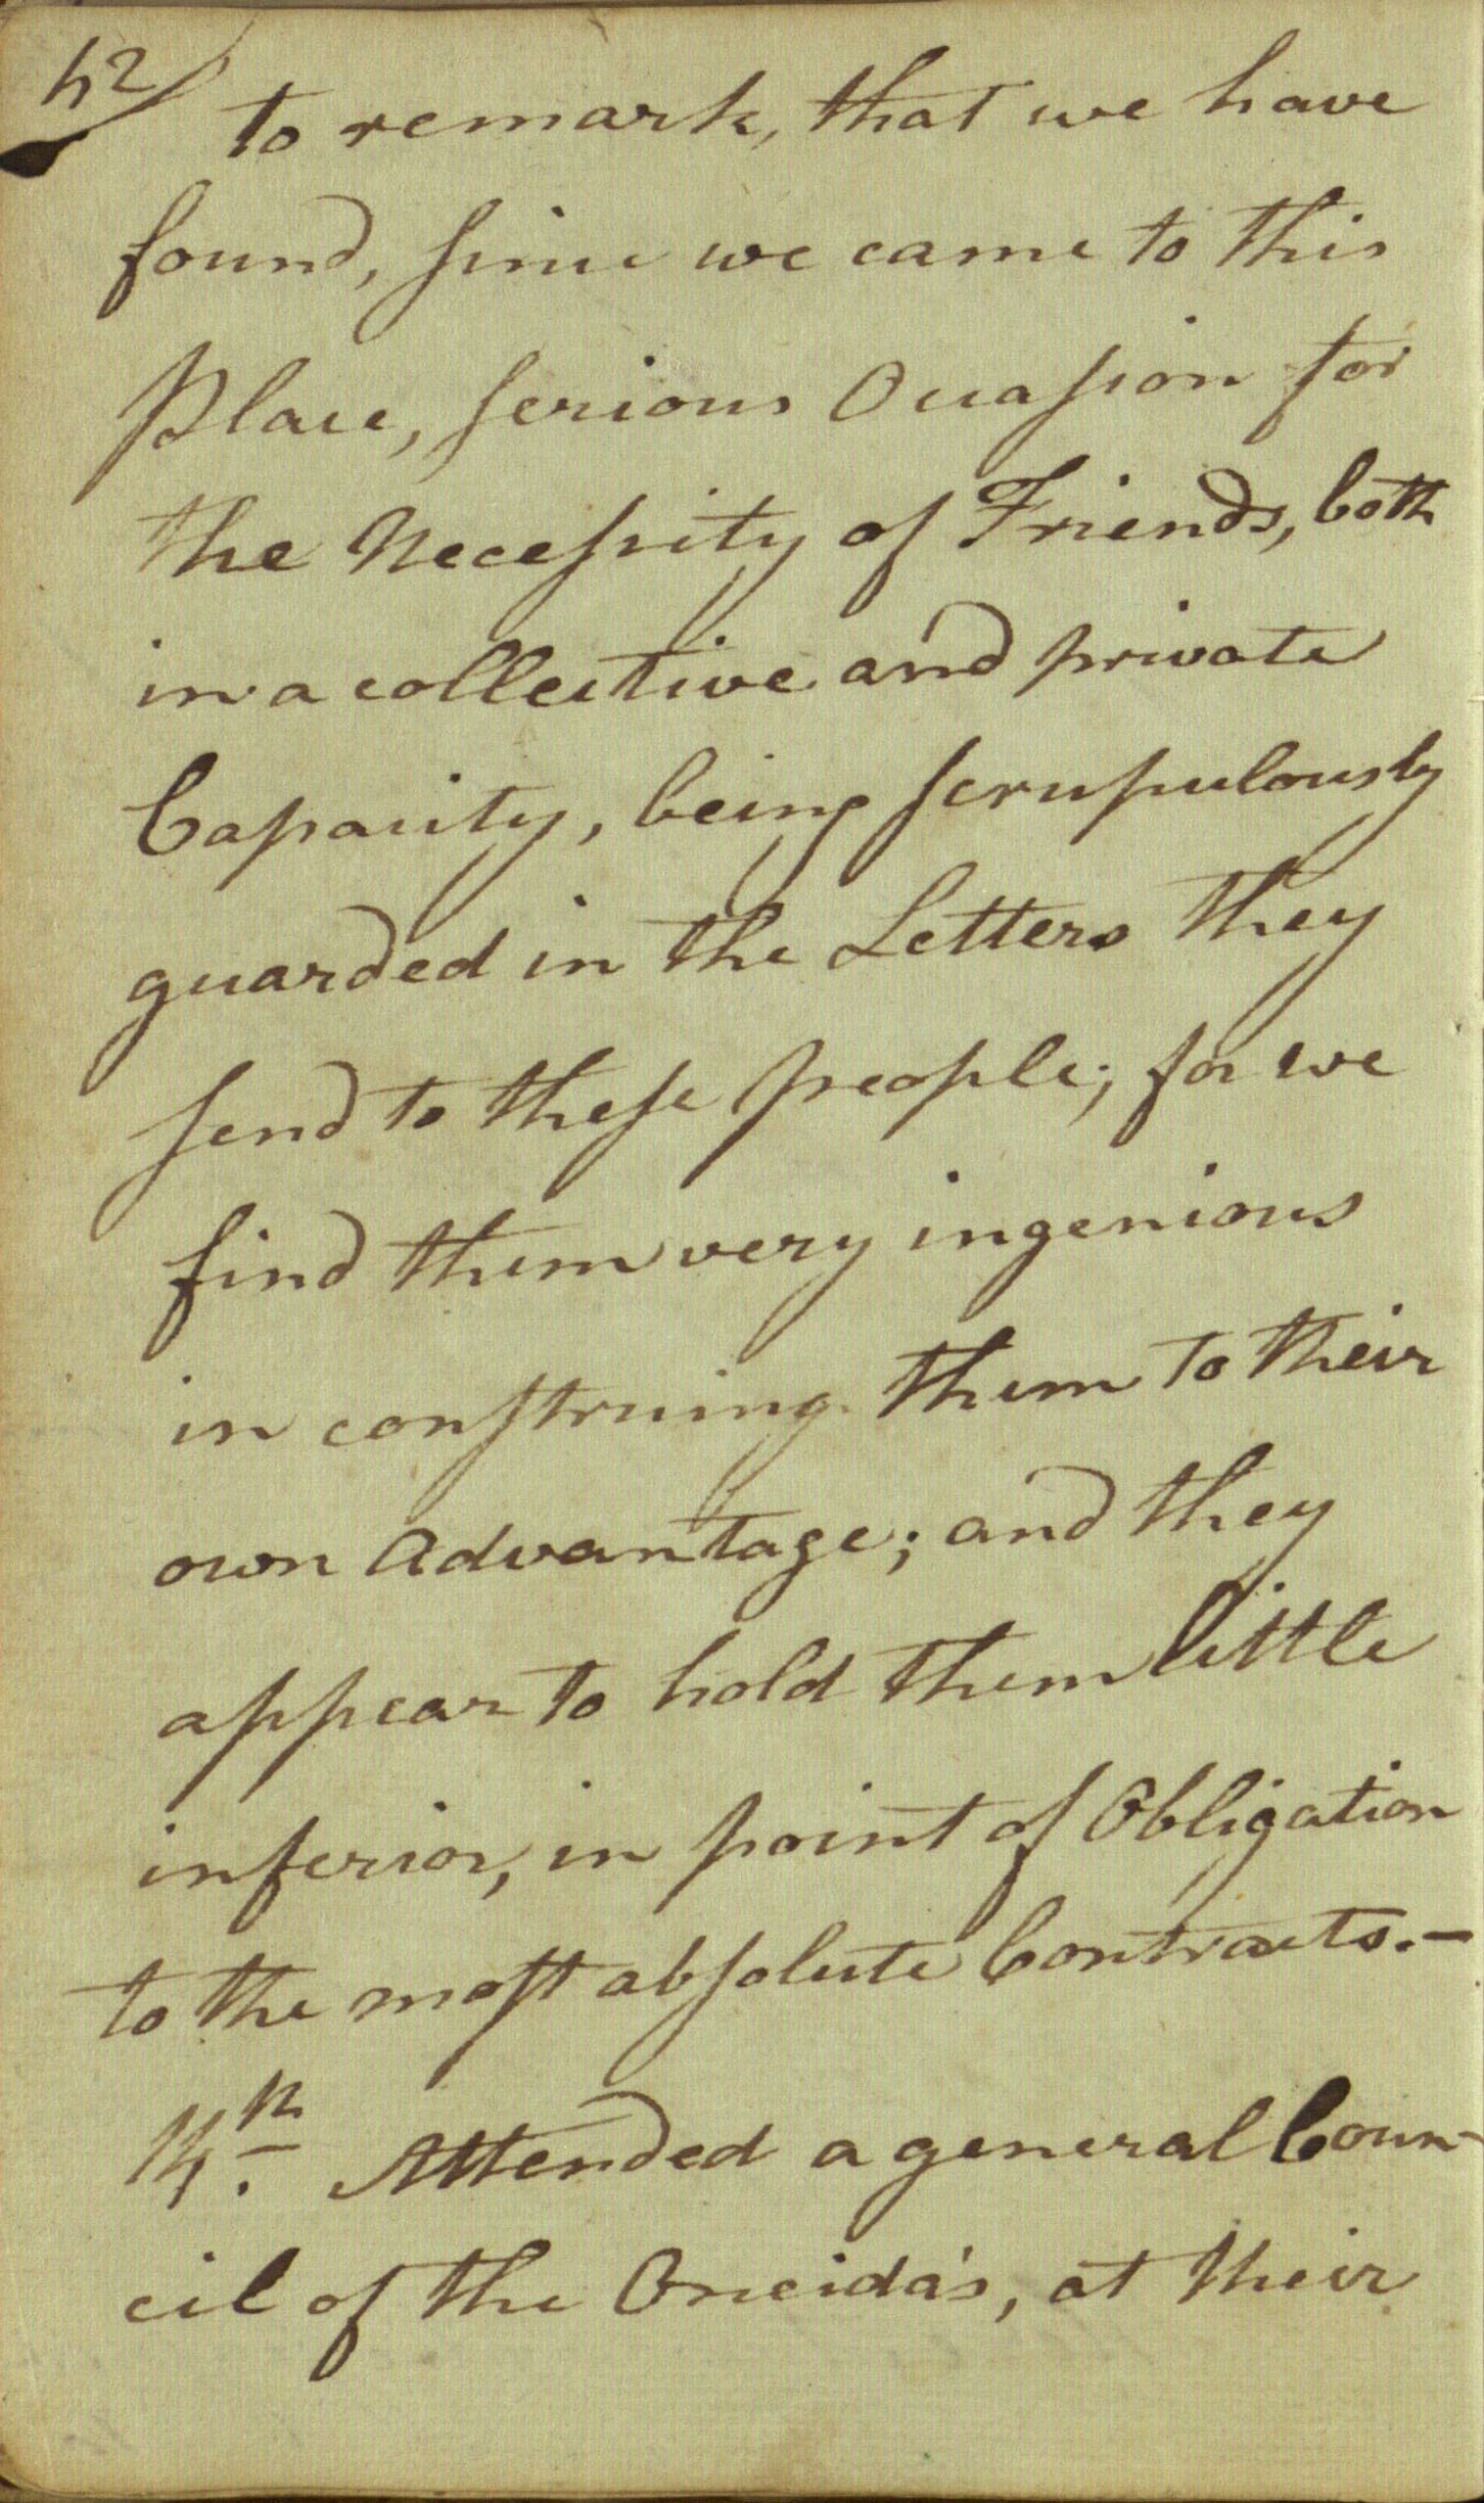 52
to remark, that we have
found, since we came to this
Place, serious Occasion for
the Necessity of Friends, both
in a collective and private
Capacity, being scrupulously
guarded in the Letters they
send to these people; for we
find them very ingenious
in construing them to their
own Advantage; and they
appear to hold them little
inferior, in point of Obligation
to the most absolute Contracts.-
14th. Attended a general Coun-
cil of the Oneida's, at their